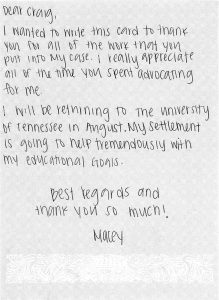 Dear Craig,
I wanted to write this card to thank
you for all of the work that you
put into my case. I really appreciate
all of the time you spent advocating
for me.
I will be returning to the university
of Tennessee in August. My settlement
is going to help tremendously with
my educational goals.
Best Regards and
thank you so much!
Macey